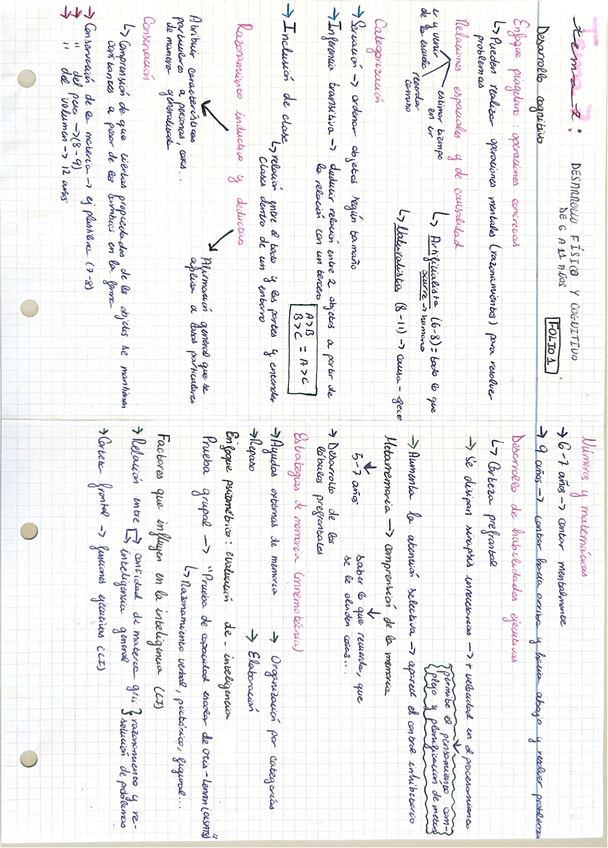 Tema 7:
tema 7:
DESARROLLO FÍSICO Y COGNITIVO
DE 6 A 11 AÑOS
FOLIO 1
Desarrollo cognitivo
Enfoque piagetiano: operaciones concretas
↳ Pueden realizar operaciones mentales (razonamientos) para resolver
problemas
Relaciones espaciales y de causalidad
ir y venir
de la escuela
estimar tiempo
en ir
recordar
camino
↳ Artificialista (6-8) = todo lo que
ocurre → humano
↳ Naturalista (8-11) → causa-
Categorización
→ Seriación → ordenar objetos según tamaño
→ Inferencia transitiva → deducir relación entre 2 objetos a partir de
la relación con un tercero
A>B
B>C = A>C
→ Inclusión de clase
↳ relación entre el todo y las partes y entender
clases dentro de un entorno
Razonamiento inductivo y deductivo
Atribuir características
particulares a personas, cosas...
de manera
generalizada
Afirmación general que se
aplica a casos particulares
Conservación
↳ Comprensión de que ciertas propiedades de los objetos se mantienen
constantes a pesar de los cambios en la forma
→ Conservación de la materia → ej plastilina (7-8)
→ " del peso → (8-9)
→ " del volumen → 12 años
Números y matemáticas
→ 6-7 años → contar mentalmente
→ 9 años → contar hacia arriba y hacia abajo y resolver problemas
Desarrollo de habilidades ejecutivas
↳ Corteza prefrontal
→ Se disipan sinapsis innecesarias → + velocidad en el procesamiento
permite el pensamiento com-
plejo y planificación de metas
→ Aumenta la atención selectiva → aparece el control inhibitorio
Metamemoria → comprensión de la memoria
5-7 años
saber lo que recuerda, que
se le olvidan cosas...
→ Desarrollo de los
lóbulos prefrontales
Estrategias de memoria (mnemotécnica)
→ Ayudas externas de memoria
→ Repaso
→ Organización por categorías
→ Elaboración
Enfoque psicométrico: evaluación de inteligencia
Prueba grupal → "Prueba de capacidad escolar de Otis-Lennon (OLSAT8)"
↳ Razonamiento verbal, pictórico, figural...
Factores que influyen en la inteligencia (CI)
→ Relación entre cantidad de materia gris
inteligencia general
razonamiento y re-
solución de problemas
→ Corteza frontal → funciones ejecutivas (CI)